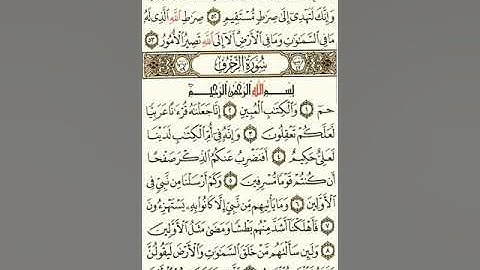 وَإِنَّكَ لَتَهْدِىٓ إِلَىٰ صِرَٰطٍ مُّسْتَقِيمٍ ٥٢ صِرَٰطِ ٱللَّهِ ٱلَّذِى لَهُۥ
مَا فِى ٱلسَّمَٰوَٰتِ وَمَا فِى ٱلْأَرْضِ أَلَآ إِلَى ٱللَّهِ تَصِيرُ ٱلْأُمُورُ ٥٣
سُورَةُ الزُّخْرُفِ
بِسْمِ ٱللَّهِ ٱلرَّحْمَٰنِ ٱلرَّحِيمِ
حمٓ ١ وَٱلْكِتَٰبِ ٱلْمُبِينِ ٢ إِنَّا جَعَلْنَٰهُ قُرْءَٰنًا عَرَبِيًّا
لَّعَلَّكُمْ تَعْقِلُونَ ٣ وَإِنَّهُۥ فِىٓ أُمِّ ٱلْكِتَٰبِ لَدَيْنَا
لَعَلِىٌّ حَكِيمٌ ٤ أَفَنَضْرِبُ عَنكُمُ ٱلذِّكْرَ صَفْحًا
أَن كُنتُمْ قَوْمًا مُّسْرِفِينَ ٥ وَكَمْ أَرْسَلْنَا مِن نَّبِىٍّ فِى
ٱلْأَوَّلِينَ ٦ وَمَا يَأْتِيهِم مِّن نَّبِىٍّ إِلَّا كَانُوا۟ بِهِۦ يَسْتَهْزِءُونَ
٧ فَأَهْلَكْنَآ أَشَدَّ مِنْهُم بَطْشًا وَمَضَىٰ مَثَلُ ٱلْأَوَّلِينَ
٨ وَلَئِن سَأَلْتَهُم مَّنْ خَلَقَ ٱلسَّمَٰوَٰتِ وَٱلْأَرْضَ لَيَقُولُنَّ